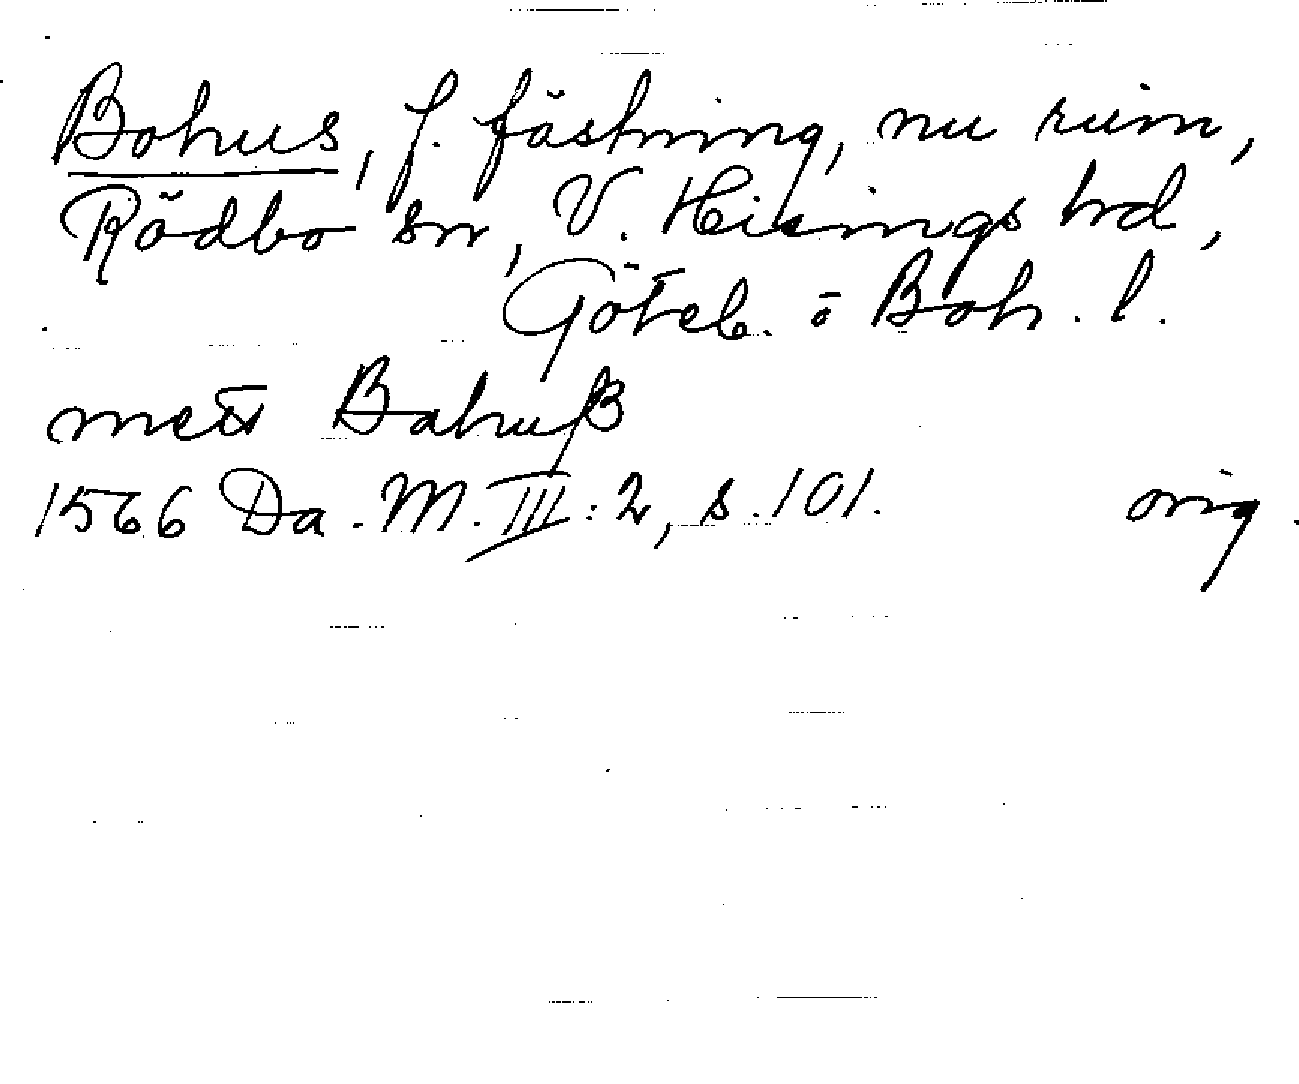 Bohus, f. fästning, nu ruin,
Rödbo sn, V. Hisings hrd,
Göteb. o Boh. l.
mett Bahuß
1566 Da. M. III: 2, s. 101. orig.